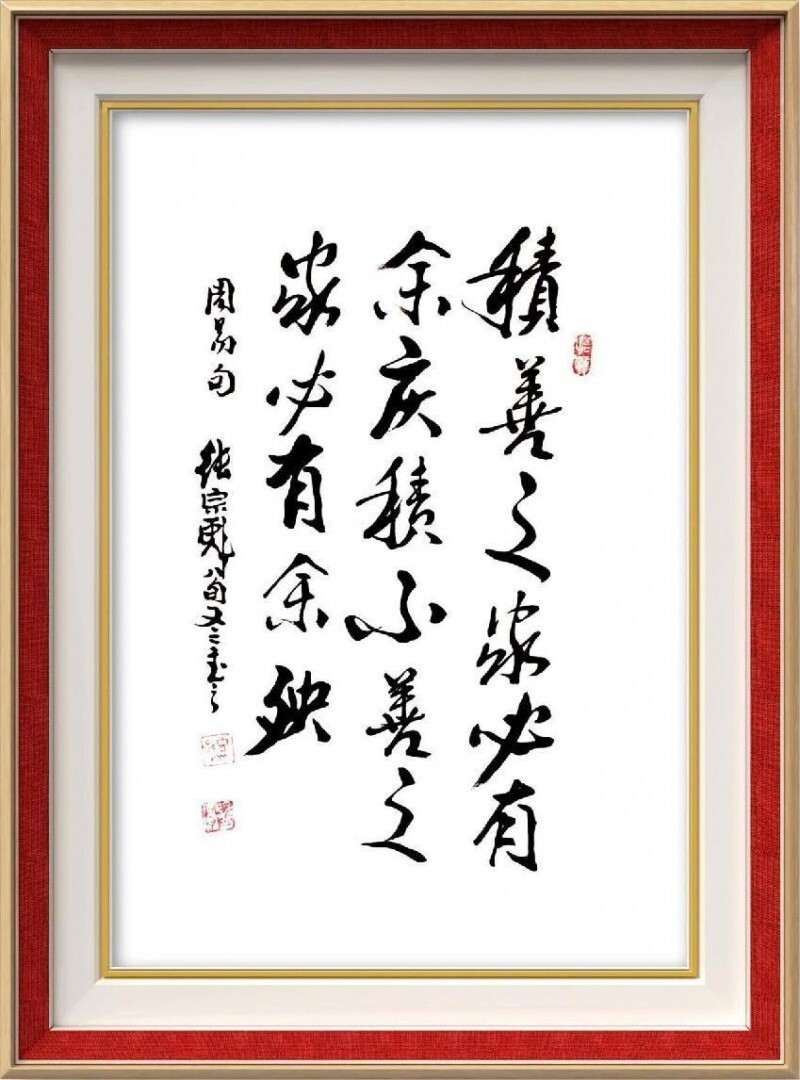 積善之家必有
余庆積不善之
家必有余殃
周易句
张宗彪八旬又二书之